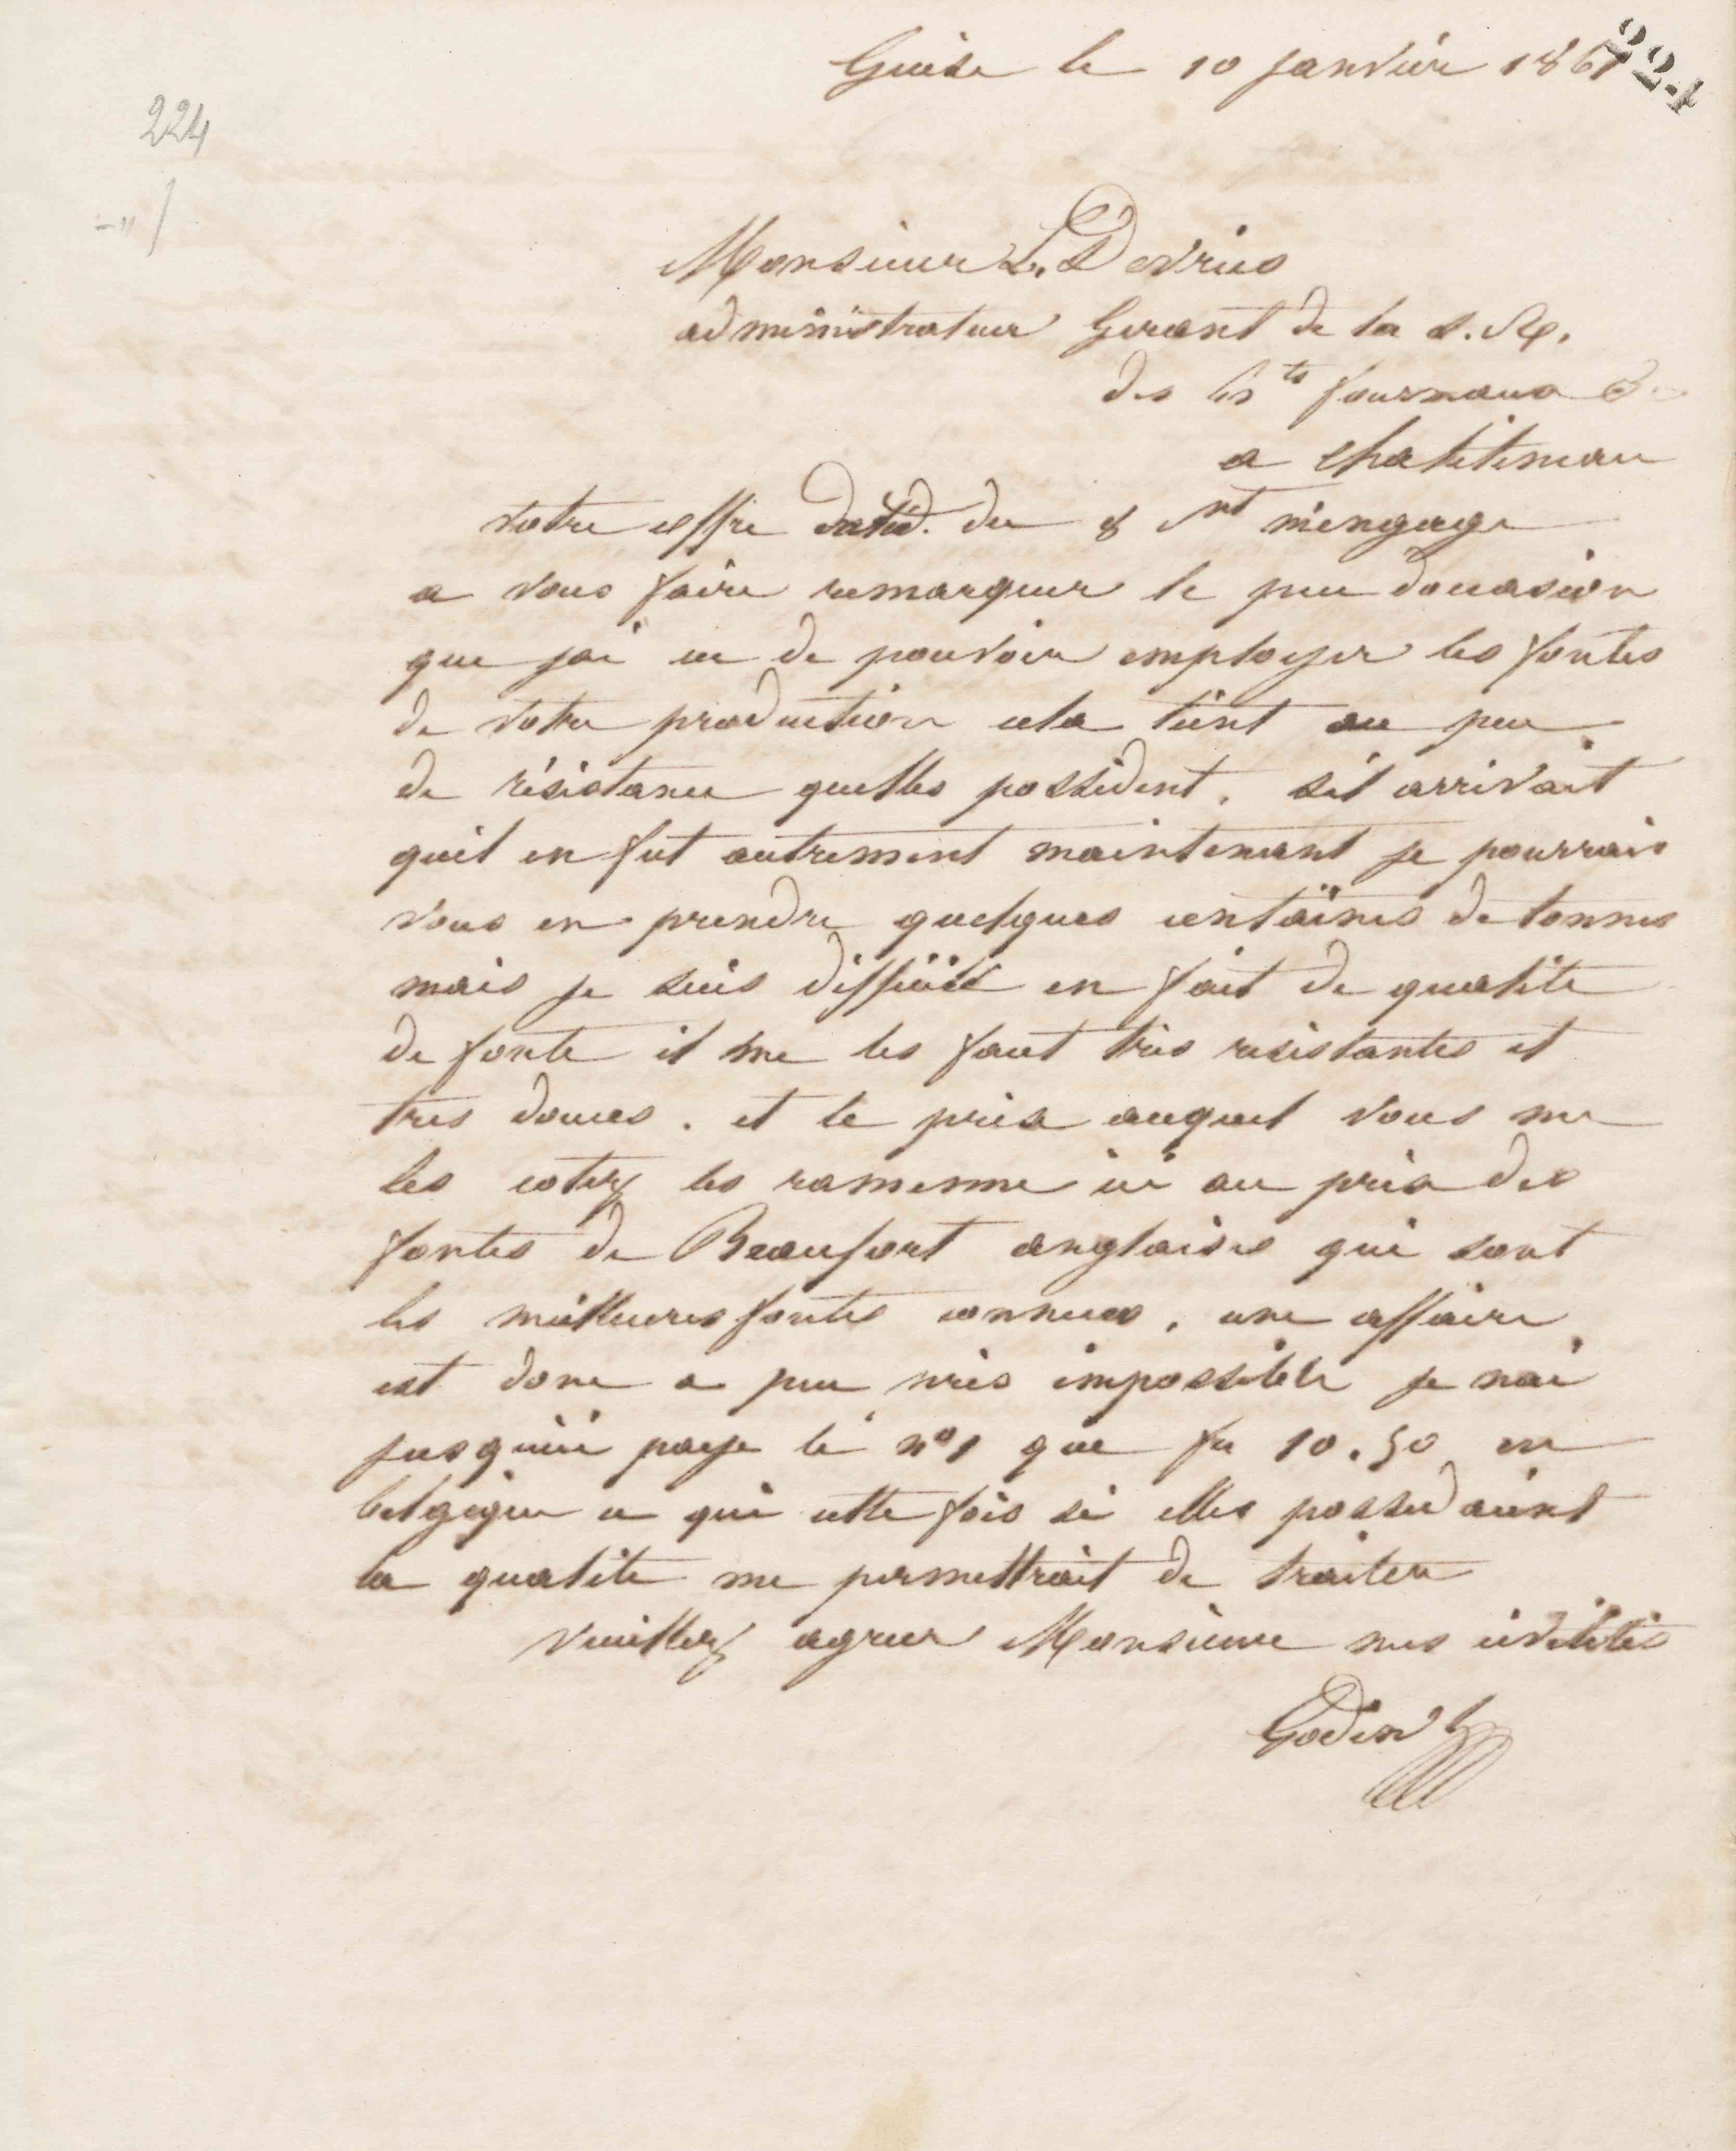 Guise le 10 janvier 1861
224
224
Monsieur L. Devries
administrateur Gerant de la S.
des hts fourneaux &
a Chatelineau
votre offre datée du 8 ct m'engage
a vous faire remarquer le peu doccasion
que jai eu de pouvoir employer les fontes
de votre production cela tient au peu
de résistance quelles possèdent, sil arrivait
quil en fut autrement maintenant je pourrais
vous en prendre quelques centaines de tonnes
mais je suis difficile en fait de qualite
de fonte il me les faut très resistantes et
tres douces. et le prix auquel vous me
les cotez les ramenne ici au prix des
fontes de Beaufort anglaises qui sont
les meilleures fontes connues, une affaire
est donc a peu près impossible je nai
jusquici paye le no1 que fr 10.50 en
belgique ce qui cette fois si elles possedaient
la qualite me permettrait de traiter
veuillez agreer Monsieur mes civilités
Godin